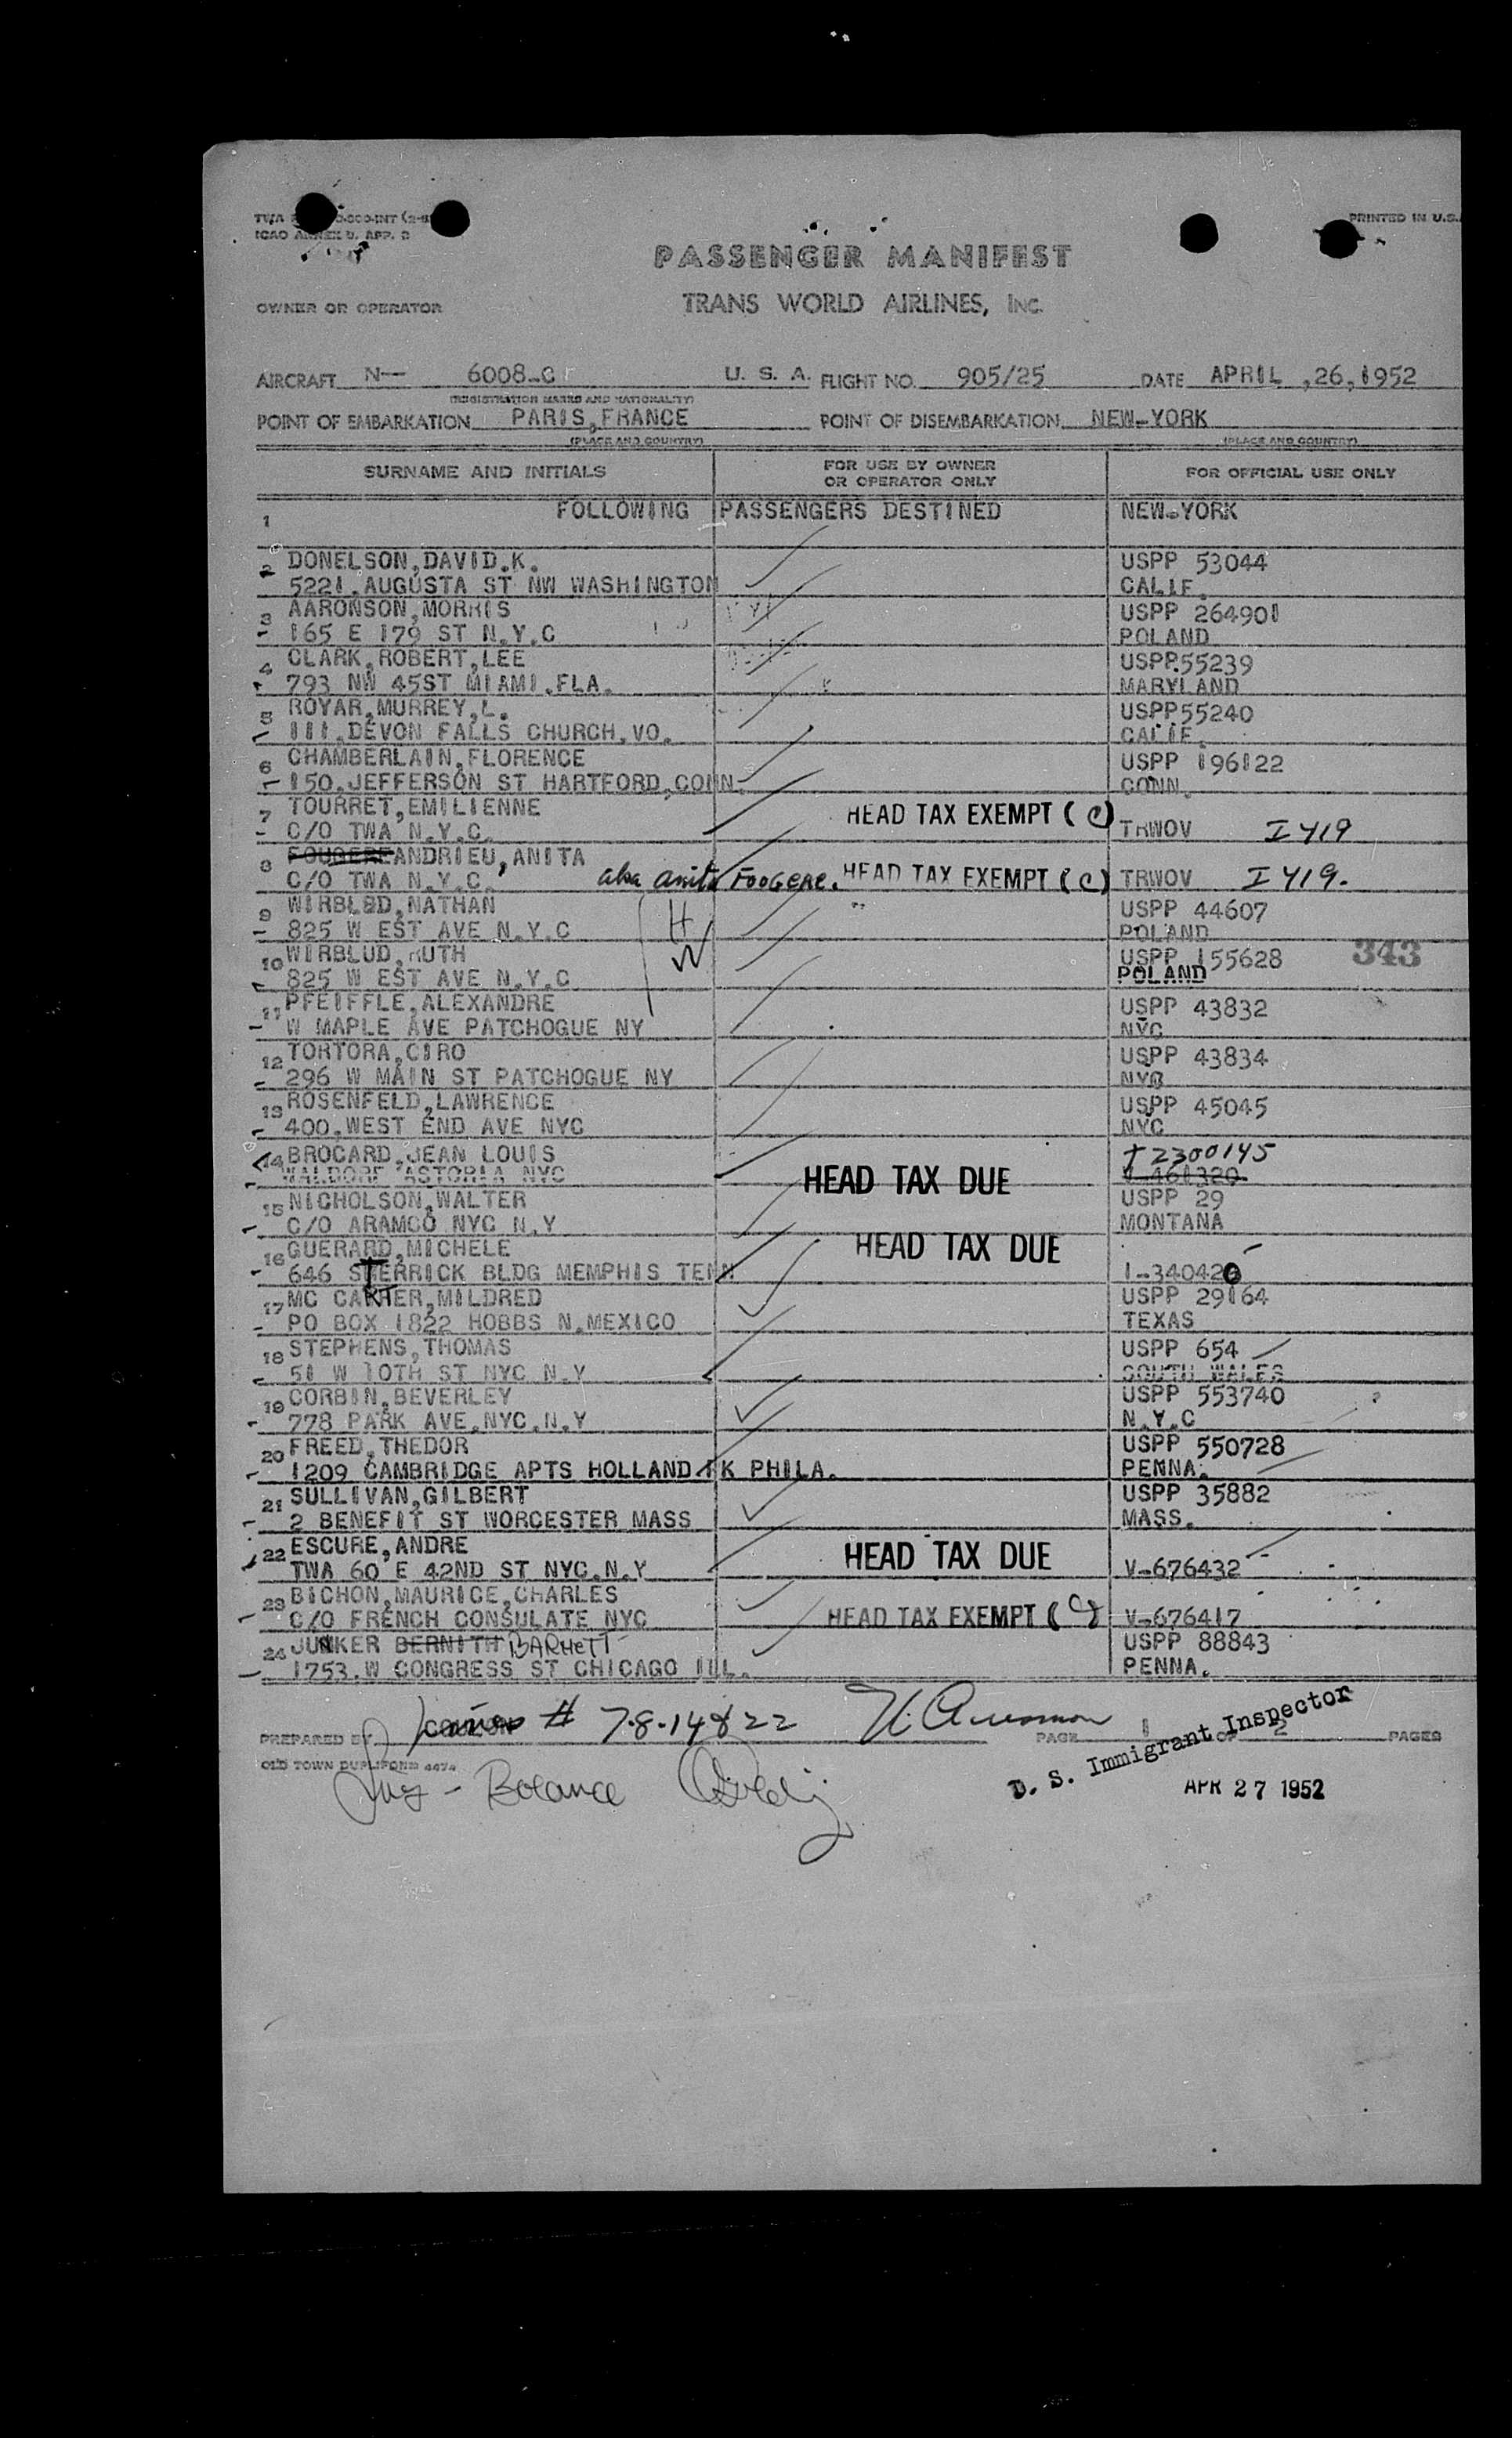 ICAO ANNEX 9, APP. 2
PRINTED IN U.S.
PASSENGER MANIFEST
OWNER OR OPERATOR TRANS WORLD AIRLINES, INC.
AIRCRAFT N— 6008-C U. S. A. FLIGHT NO. 905/25 DATE APRIL ,26,1952
(REGISTRATION MARKS AND NATIONALITY)
POINT OF EMBARKATION PARIS,FRANCE POINT OF DISEMBARKATION NEW-YORK
(PLACE AND COUNTRY) (PLACE AND COUNTRY)
SURNAME AND INITIALS FOR USE BY OWNER OR OPERATOR ONLY FOR OFFICIAL USE ONLY
1 FOLLOWING PASSENGERS DESTINED NEW-YORK
2 DONELSON,DAVID.K. USPP 53044
5221.AUGUSTA ST NW WASHINGTON CALIF.
3 AARONSON,MORRIS USPP 264901
165 E 179 ST N.Y.C POLAND
4 CLARK,ROBERT,LEE USPP.55239
793 NW 45ST MIAMI.FLA. MARYLAND
5 ROYAR,MURREY,L. USPP55240
111.DEVON FALLS CHURCH,VO. CALIF.
6 CHAMBERLAIN,FLORENCE USPP 196122
150.JEFFERSON ST HARTFORD,CONN. CONN.
7 TOURRET,EMILIENNE HEAD TAX EXEMPT (C)
C/O TWA N.Y.C. TRWOV I 419
8 FOUGEREANDRIEU,ANITA
C/O TWA N.Y.C. aka anita FOOGERE. HEAD TAX EXEMPT (C) TRWOV I 419.
9 WIRBLED,NATHAN H USPP 44607
825 W EST AVE N.Y.C POLAND
10 WIRBLUD,RUTH W USPP 155628 343
825 W EST AVE N.Y.C. POLAND
11 PFEIFFLE,ALEXANDRE USPP 43832
W MAPLE AVE PATCHOGUE NY NYC
12 TORTORA,CIRO USPP 43834
296 W MAIN ST PATCHOGUE NY NYC
13 ROSENFELD,LAWRENCE USPP 45045
400.WEST END AVE NYC NYC
14 BROCARD,JEAN LOUIS T 2300145
WALDORF ASTORIA NYC HEAD TAX DUE V 461320.
15 NICHOLSON,WALTER USPP 29
C/O ARAMCO NYC N.Y MONTANA
16 GUERARD,MICHELE HEAD TAX DUE
646 STERRICK BLDG MEMPHIS TENN I-340420
17 MC CARTER,MILDRED USPP 29164
PO BOX 1822 HOBBS N.MEXICO TEXAS
18 STEPHENS,THOMAS USPP 654
51 W 10TH ST NYC N.Y SOUTH WALES
19 CORBIN,BEVERLEY USPP 553740
778 PARK AVE,NYC.N.Y N.Y.C
20 FREED,THEDOR USPP 550728
1209 CAMBRIDGE APTS HOLLAND PK PHILA. PENNA.
21 SULLIVAN,GILBERT USPP 35882
2 BENEFIT ST WORCESTER MASS MASS.
22 ESCURE,ANDRE HEAD TAX DUE
TWA 60 E 42ND ST NYC.N.Y V-676432
23 BICHON,MAURICE,CHARLES
C/O FRENCH CONSULATE NYC HEAD TAX EXEMPT ( V-676417
24 JUNKER BERNITH BARNETT USPP 88843
1753.W CONGRESS ST CHICAGO ILL. PENNA.
PREPARED BY # 7-8-14&22 PAGE 1 OF 2 PAGES
OLD TOWN DUPLIFORM
Balance
U. S. Immigrant Inspector
APR 27 1952